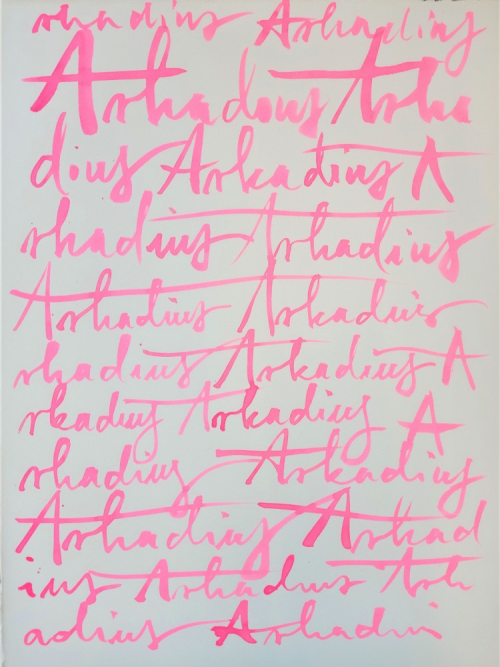 rkadius Arkadius
Arkadius Arka
dius Arkadius A
rkadius Arkadius
Arkadius Arkadius
rkadius Arkadius A
rkadius Arkadius A
rkadius Arkadius
Arkadius Arkad
ius Arkadius Ark
adius Arkadiu